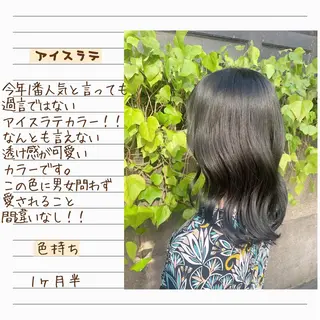 アイスラテ
今年1番人気と言っても
過言ではない
アイスラテカラー!!
なんとも言えない
透け感が可愛い
カラーです。
この色に男女問わず
愛されること
間違いなし!!
色持ち
1ヶ月半